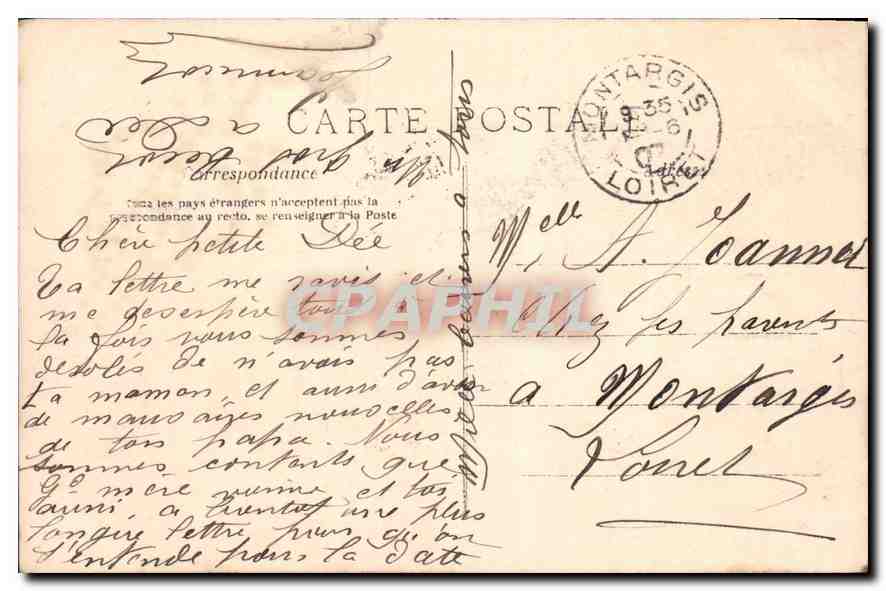 CARTE POSTALE
Correspondance
Tous les pays étrangers n'acceptent pas la
correspondance au recto, se renseigner à la Poste
MONTARGIS
LOIRET
35
6
Chère petite Dée
Ta lettre me ravis et
me desespère tout à
la fois nous sommes
desolés de n'avois pas
ta maman et aussi d'avoir
de mauvaises nouvelles
de ton papa. Nous
sommes contents que
Gd mère vienne et toi
aussi, a bientot une plus
longue lettre pour qu'on
s'entende pour la date
Mille baisers a tous
Un gros
a Dée
Melle A. Joannet
Chez ses parents
a Montargis
Loiret
CPAPHIL